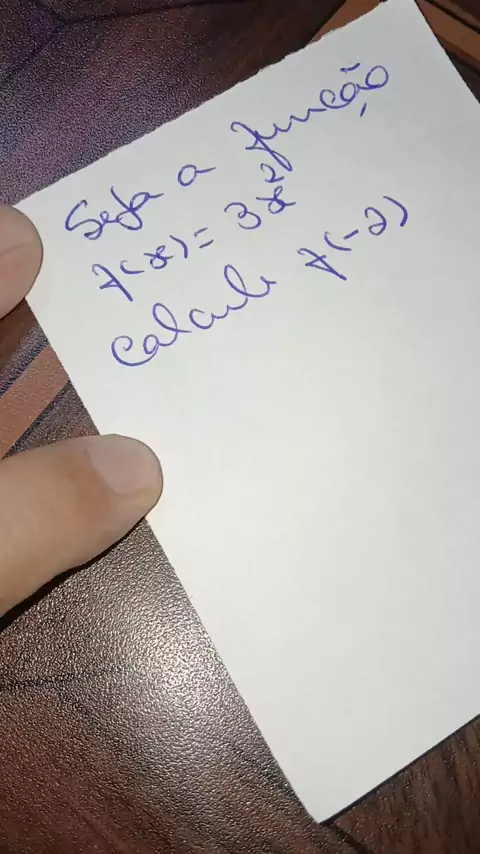 Seja a função
f(x) = 3x²
Calcule f(-2)